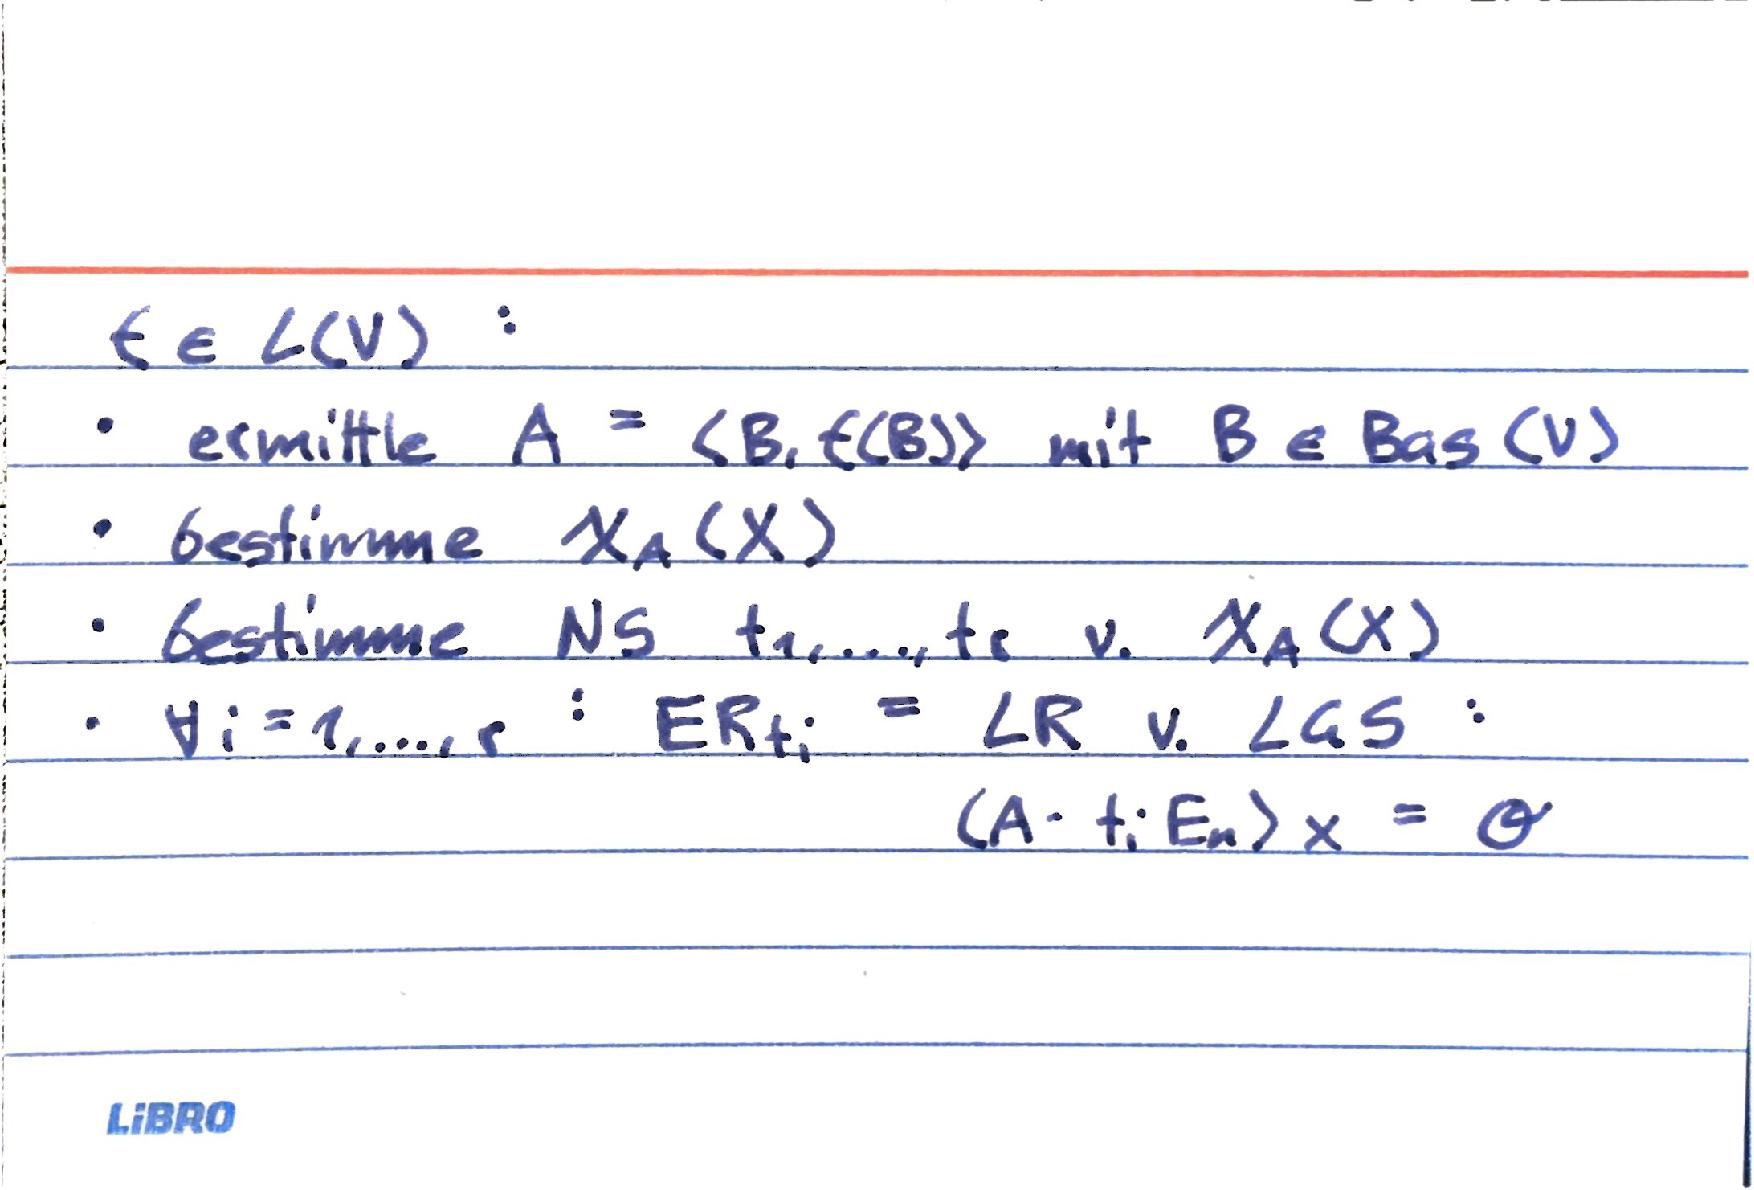 f ∈ L(V) :
• ermittle A = ⟨B, f(B)⟩ mit B ∈ Bas(V)
• bestimme χ_A(X)
• bestimme NS t₁,...,tᵣ v. χ_A(X)
• ∀i=1,...,r : ER_{tᵢ} = LR v. LGS :
(A - tᵢEₙ)x = 𝒪
LiBRO